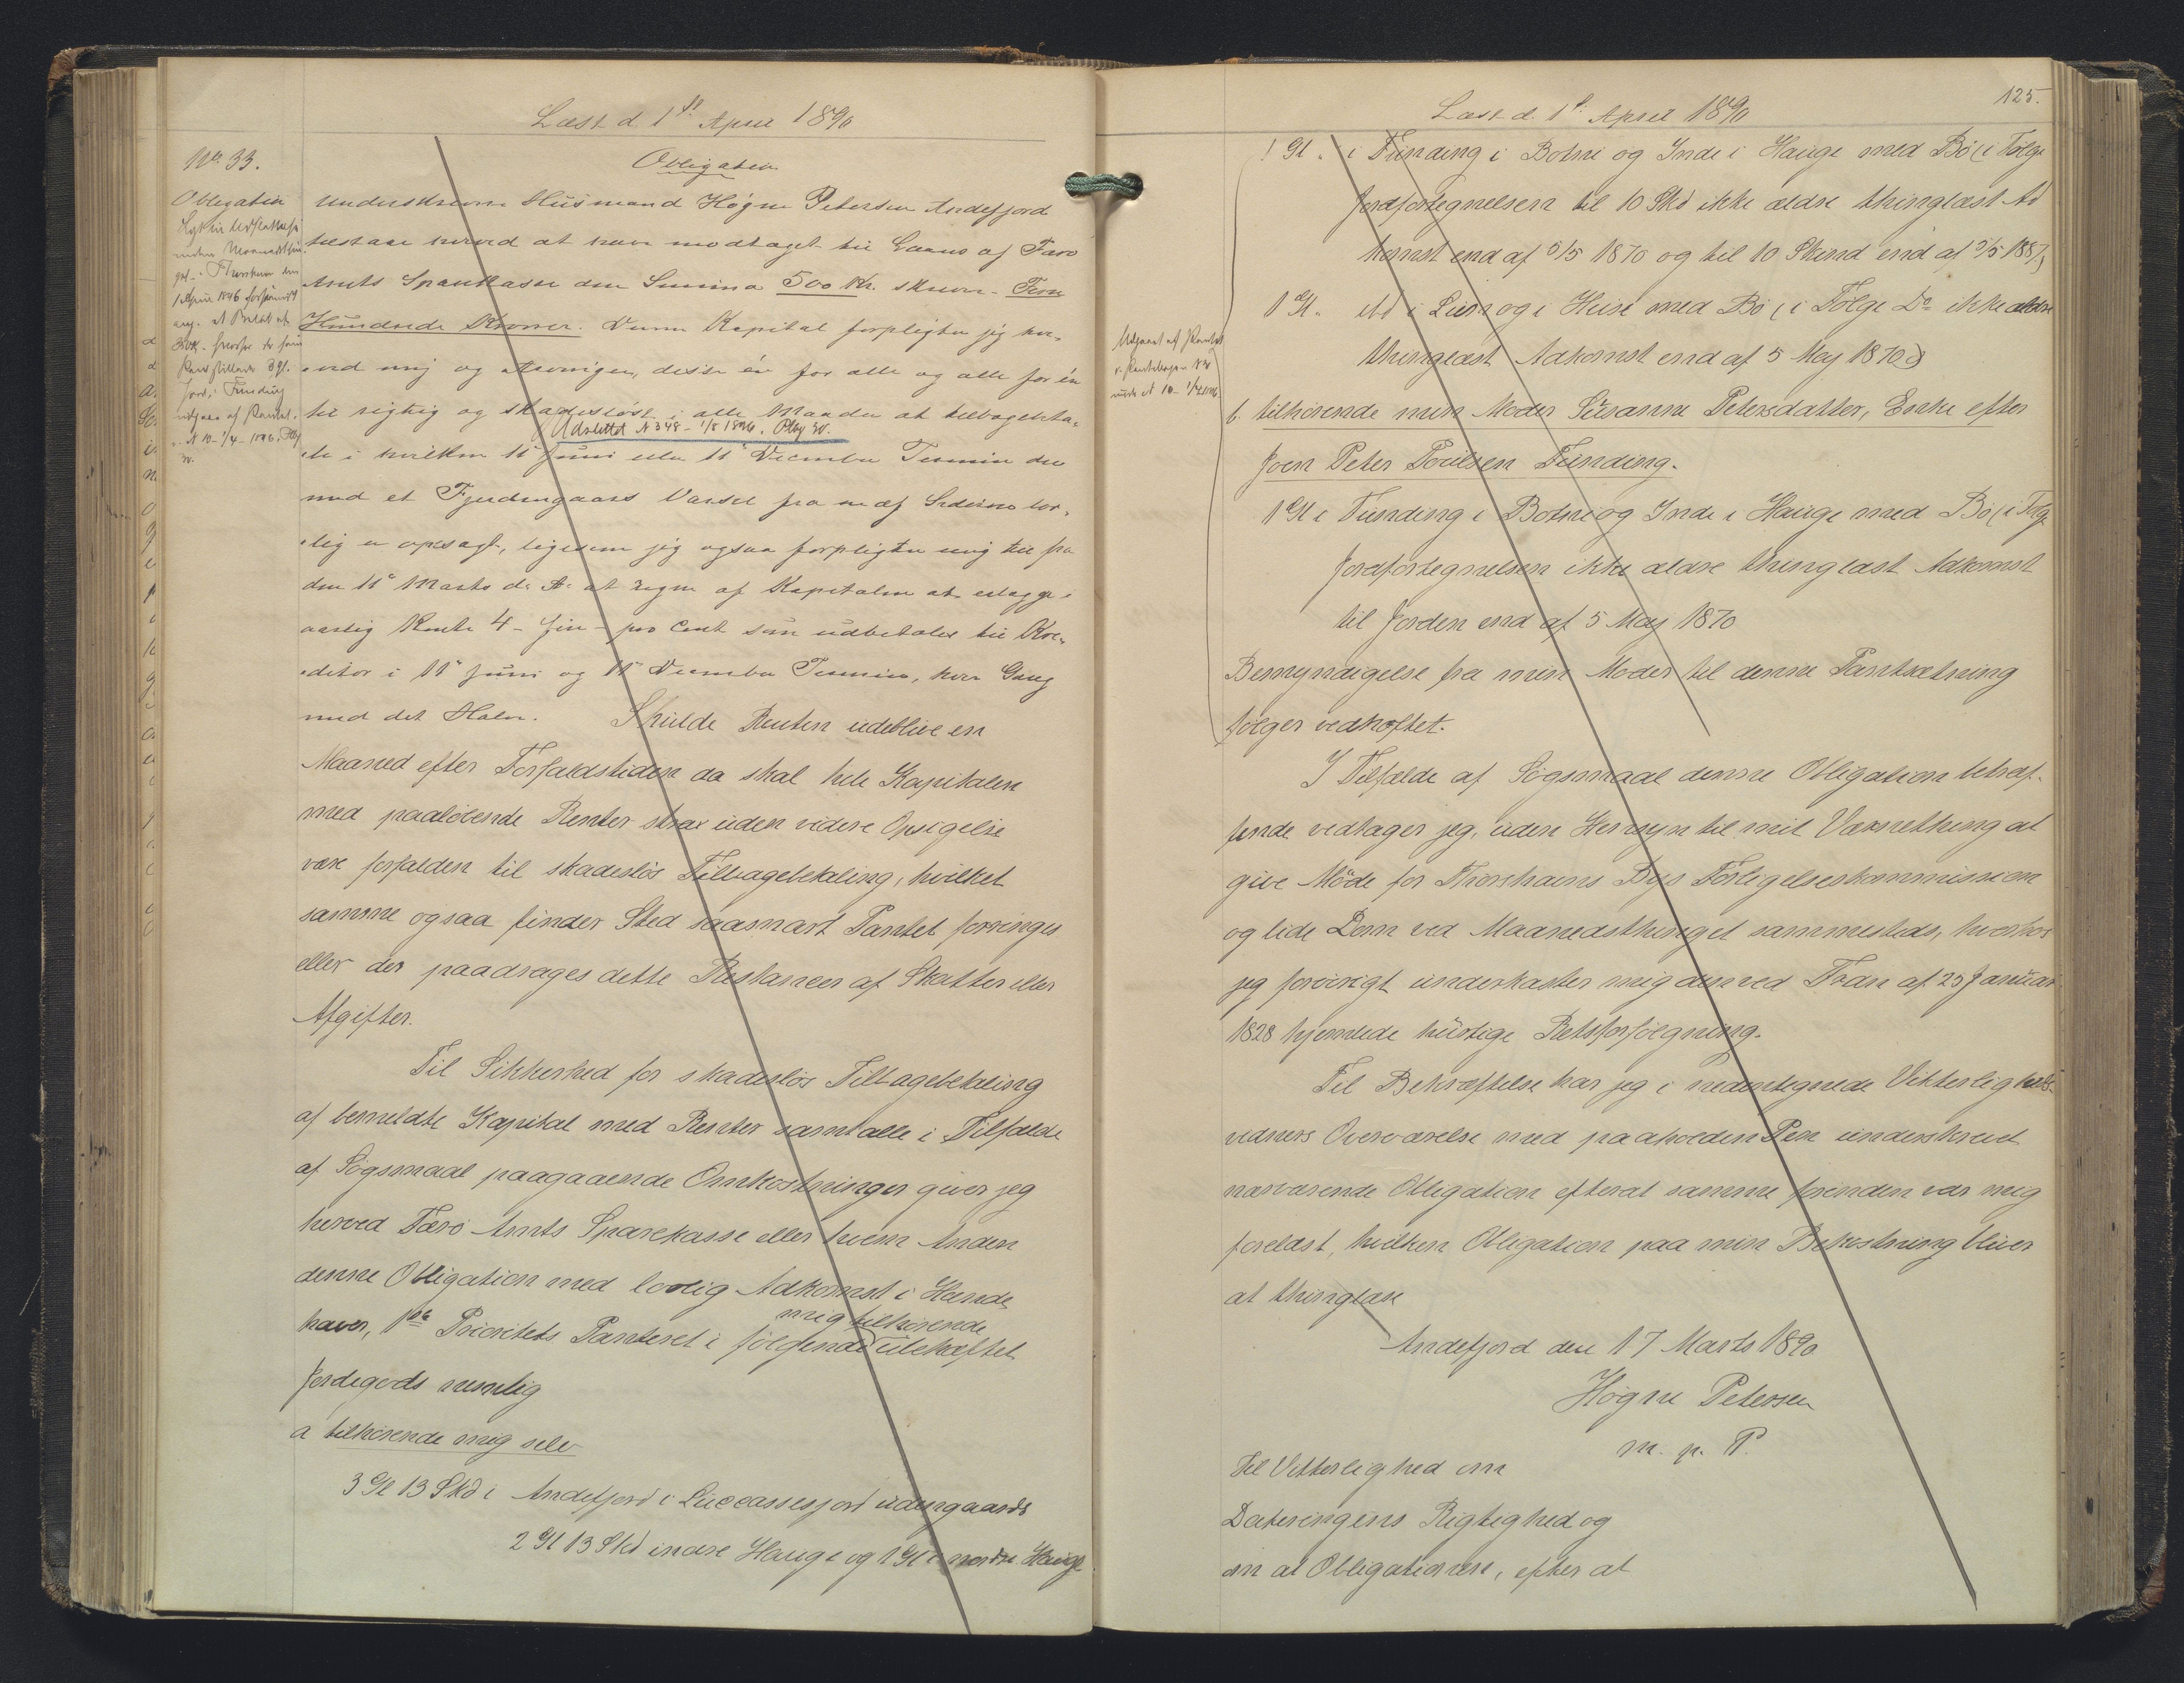 Læst d. 1st April 1890
No. 33.
Obligation
Obligation
Underskrevne Húsmand Högne Petersen Andefjord
tilstaar herved at have modtaget til Laans af Færø
Amts Sparekasse den Summa 500 Kr. skriver - Fem
Hundrede Kroner. Denne Kapital forpligter jeg her-
ved mig og Arvinger, desse én for alle og alle for én
til rigtig og skadesløst i alle Maader at tilbagebeta-
Udslettet N 348 - 1/8 1896.
le i hvilken 11te Júni eller 11te December Termin den
med et Fjerdingaars Varsel fra en af Siderne lov-
lig er opsagt, ligesom jeg ogsaa forpligter mig til fra
den 11te Marts d. A. at regne af Kapitalen at erlægge
aarlig Rente 4 - fire - pro Cent som údbetales til Kre-
ditor i 11te Júni og 11te December Termin, hver Gang
med det Halve. Skúlde Renten údeblive en
Maaned efter Forfaldstiden da skal hele Kapitalen
med paaløbende Renter strax úden videre Opsigelse
være forfalden til skadesløs Tilbagebetaling, hvilket
samme ogsaa finder Sted saasnart Pantet forringes
eller der paadrages dette Restancer af Skatter eller
Afgifter.
Til Sikkerhed for skadesløs Tilbagebetaling
af bemeldte Kapital med Renter samt alle i Tilfælde
af Søgsmaal paagaaende Omkostninger giver jeg
herved Færø Amts Sparekasse eller hvem Anden
denne Obligation med lovlig Adkomst i Hænde
haver, 1ste Prioritets Panteret i følgende úbehæftet
mig tilhørende
Jordegods nemlig
a tilhørende mig selv
3 Gl 13 Skd i Andefjord i Lúccassesjord údengaards
2 Gl 13 Skd indre Haúge og 1 Gl i nordre Haúge
Læst d. 1st April 1890
125.
1 Gl. i Fúnding i Botni og Inde i Haúge med Bø (i Følge
Jordfortegnelsen til 10 Skd ikke ældre thinglæst Ad
komst end af 5/5 1870 og til 10 Skind end af 5/5 1887)
1 Gl. ibd i Lien og i Húse med Bø (i Følge Do ikke ældre
thinglæst Adkomst end af 5 Maj 1870)
Udgaaet af Pantet
b. tilhørende min Moder Súsanne Petersdatter, Enke efter
Joen Peter Poúlsen Fúnding.
1 Gl i Fúnding i Botni og Inde i Haúge med Bø (i Følge
Jordfortegnelsen ikke ældre thinglæst Adkomst
til Jorden end af 5 Maj 1870
Bemyndigelse fra min Moder til denne Pantsætning
følger vedhæftet.
I Tilfælde af Søgsmaal denne Obligation betræf-
fende vedtager jeg, úden Hensyn til mit Værnething at
give Møde for Thorshavns Bys Forligelseskommission
og lide Dom ved Maanedsthinget sammesteds, hvorhos
jeg forøvrigt únderkaster mig den ved Frdn af 25 Janúar
1828 hjemlede húrtige Retsforfølgning.
Til Bekræftelse har jeg i nedentegnede Vitterligheds-
vidners Overværelse med paaholden Pen únderskrevet
nærværende Obligation efterat samme forinden var mig
forelæst, hvilken Obligation paa min Bekostning bliver
at thinglæse
Andefjord den 17 Marts 1890.
Högne Petersen
m. p. P.
Til Vitterlighed om
Dateringens Rigtighed og
om at Obligationen, efter at